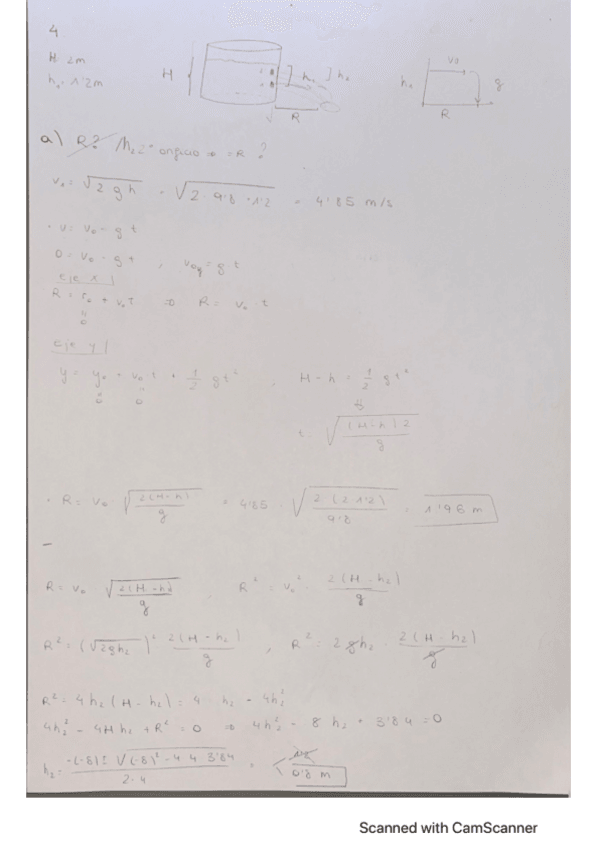 4
H 2m
h₁ 1'2m
H h₁ ] h₂ R
v₀ h₁ g R
a) R? h₂ 2º orificio ⇒ = R ?
v₀ = √2gh = √2·9'8·1'2 = 4'85 m/s
· v = v₀ - g t
0 = v₀ - g t , v₀y = g t
eje x |
R = r₀ + v₀ t ⇒ R = v₀ t
0
eje y |
y = y₀ + v₀ t + 1/2 g t² ; H-h = 1/2 g t²
0 0
t = √(H-h) 2 / g
· R = v₀ · √2(H-h) / g = 4'85 · √2 (2 1'2) / 9'8 = 1'96 m
–
R = v₀ √2(H-h₂) / g , R² = v₀² · 2(H-h₂) / g
R² = (√2gh₂)² · 2(H-h₂) / g , R² = 2gh₂ · 2(H-h₂) / g
R² = 4h₂(H-h₂) = 4 · h₂ - 4h₂²
4h₂² - 4Hh₂ + R² = 0 ⇒ 4h₂² - 8h₂ + 3'84 = 0
h₂ = -(-8) ± √(-8)² - 4·4·3'84 / 2·4 = < 1'2
0'8 m
Scanned with CamScanner